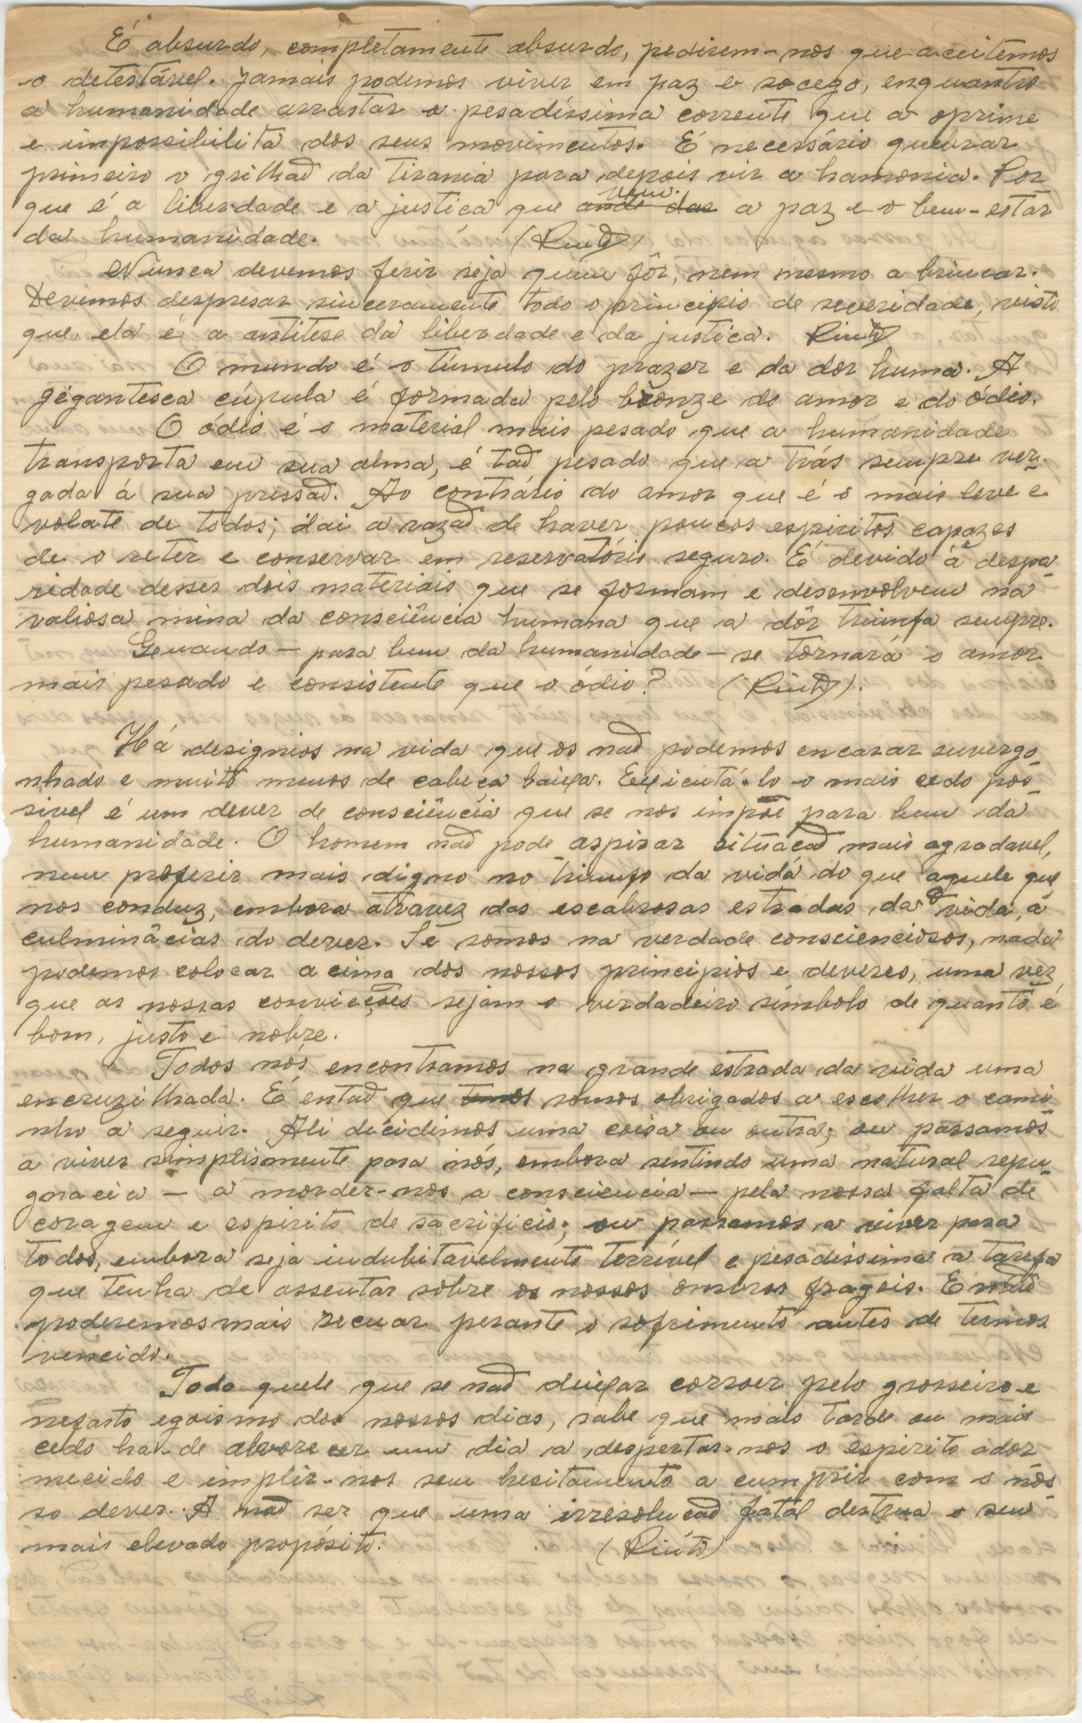 É absurdo, completamente absurdo, pedirem-nos que aceitemos
o detestável. Jamais podemos viver em paz e socego, enquanto
a humanidade arrastar a pesadíssima corrente que a oprime
e impossibilita dos seus movimentos. É necessário quebrar
primeiro o grilhaõ da tirania para depois vir a harmonia. Por
que é a liberdade e a justiça que vem a paz e o bem-estar
da humanidade.
Nunca devemos ferir seja quem fôr, nem mesmo a brincar.
Devemos despresar sinceramente todo o principio de severidade, visto
que ela é a antitese da liberdade e da justiça.
O mundo é o túmulo do prazer e da dor huma. A
gegantesca cúpula é formada pelo bronze do amor e do ódio.
O odio é o material mais pesado que a humanidade
transporta em sua alma, é taõ pesado que a trás sempre ver-
gada á sua pressaõ. Ao contrário do amor que é o mais leve e
volate de todos; dai a razaõ de haver poucos espiritos capazes
de o reter e conservar em reservatório seguro. É devido á despa-
ridade desses dois materiais que se formam e desenvolvem na
valiosa mina da consciência humana que a dôr triunfa sempre.
Quando — para bem da humanidade — se tornará o amor
mais pesado e consistente que o ódio?
Há designios na vida que os naõ podemos encarar envergo-
nhado e muito menos de cabeça baixa. Executá-lo o mais cedo pos-
sivel é um dever de consciência que se nos impõe para bem da
humanidade. O homem naõ pode aspirar situaçaõ mais agradavel,
nem proferir mais digno no triunfo da vida do que aquele que
nos conduz, embora atravez das escabrosas estradas da vida, á
culminâcias do dever. Se somos na verdade conscienciosos, nada
podemos colocar acima dos nossos principios e deveres, uma vez
que as nossas convicções sejam o verdadeiro símbolo de quanto é
bom, justo e nobre.
Todos nós encontramos na grande estrada da vida uma
encruzilhada. É entaõ que somos obrigados a escolher o cami-
nho a seguir. Ali decidimos uma coisa ou outra; ou passamos
a viver simplismente para nós, embora sentindo uma natural repu-
gnacia — a morder-nos a consciencia — pela nossa falta de
coragem e espirito de sacrificio; ou passamos a viver para
todos, embora seja indubitavelmente terrível e pesadissima a tarefa
que tenha de assentar sobre os nossos ombros frageis. E naõ
poderemos mais recuar perante o sofrimento antes de termos
vencido.
Todo quele que se naõ deixar corroer pelo grosseiro e
nefasto egoismo dos nossos dias, sabe que mais tarde ou mais
cedo ha-de alvorecer um dia a despertar-nos o espirito ador-
mecido e implir-nos sem hesitamento a cumprir com o nos-
so dever. A naõ ser que uma irresoluçaõ fatal destrua o seu
mais elevado propósito.